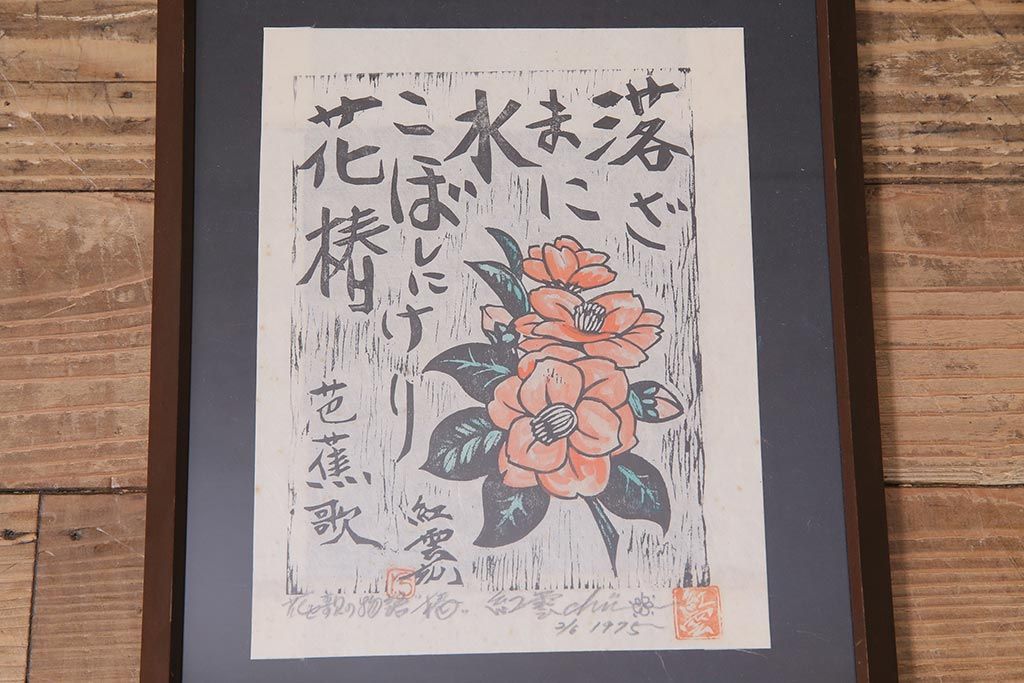 落ざ
まに
水
こぼしにけり
花椿
芭蕉歌
紅雲
花と歌の物語 椿
紅雲 chii
2/6 1975
紅雲